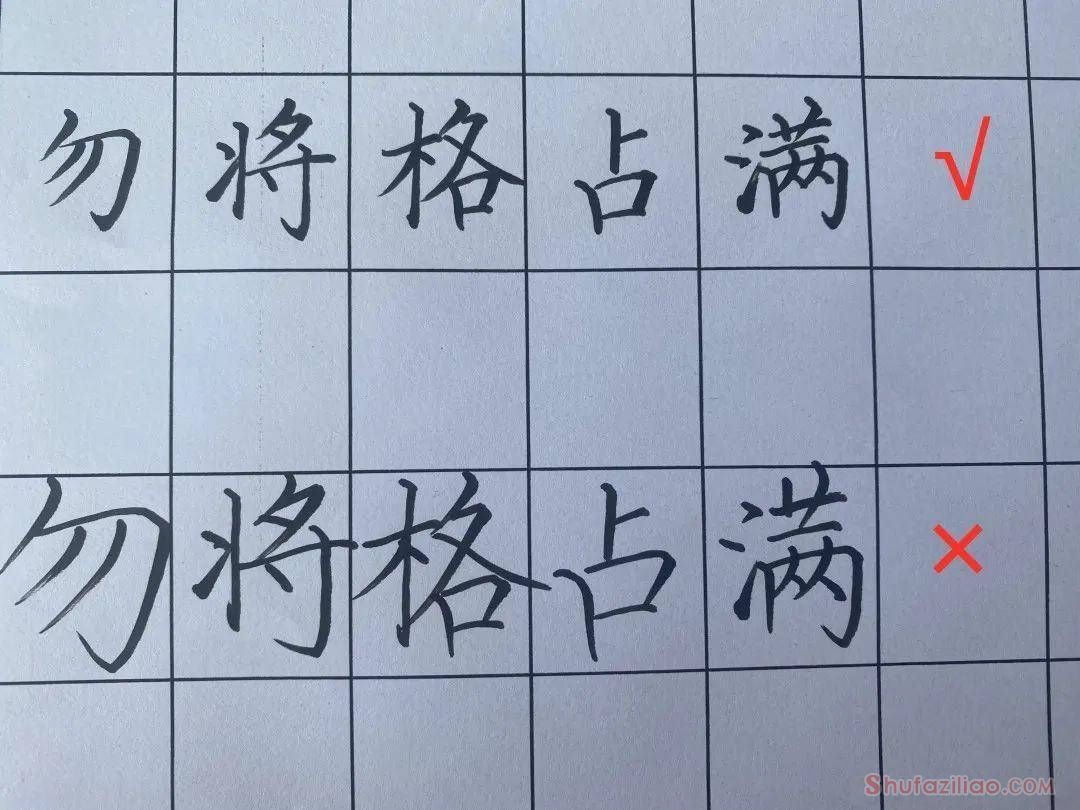 勿将格占满 √
勿将格占满 ×
Shufaziliao.com